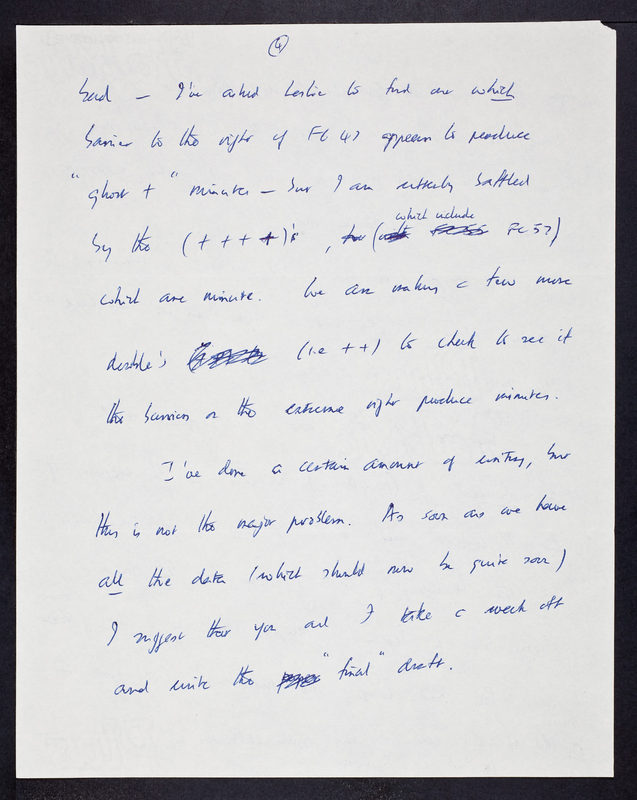 (4)
bad — I've asked Leslie to find out which
barrier to the right of FC 47 appears to produce
"ghost + " minutes — but I am utterly baffled
by the (+ + + +)'s , (which include FC 57)
which are minute. We are making a few more
double's (i.e ++) to check to see if
the barriers on the extreme right produce minutes.
I've done a certain amount of writing, but
this is not the major problem. As soon as we have
all the data (which should now be quite soon)
I suggest that you and I take a week off
and write the "final" draft.